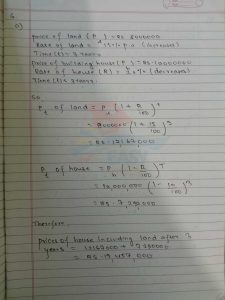 a)
price of land (P) = Rs. 8000000
Rate of land = 15% p.a. (increases)
Time (t) = 3 years
price of building house (P) = Rs. 10000000
Rate of house (R) = (decreases)
Time (t) = 3 years
So
P of land = P (1 + R/100)T
= 8000000 (1 + 15/100)3
= Rs. 12167000
P of house = P (1 - R/100)T
= 10,000,000 (1 - 10/100)3
= Rs. 7,290,000
Therefore,
price of house including land after 3
years = 12167000 + 7290000
= Rs. 19,457,000